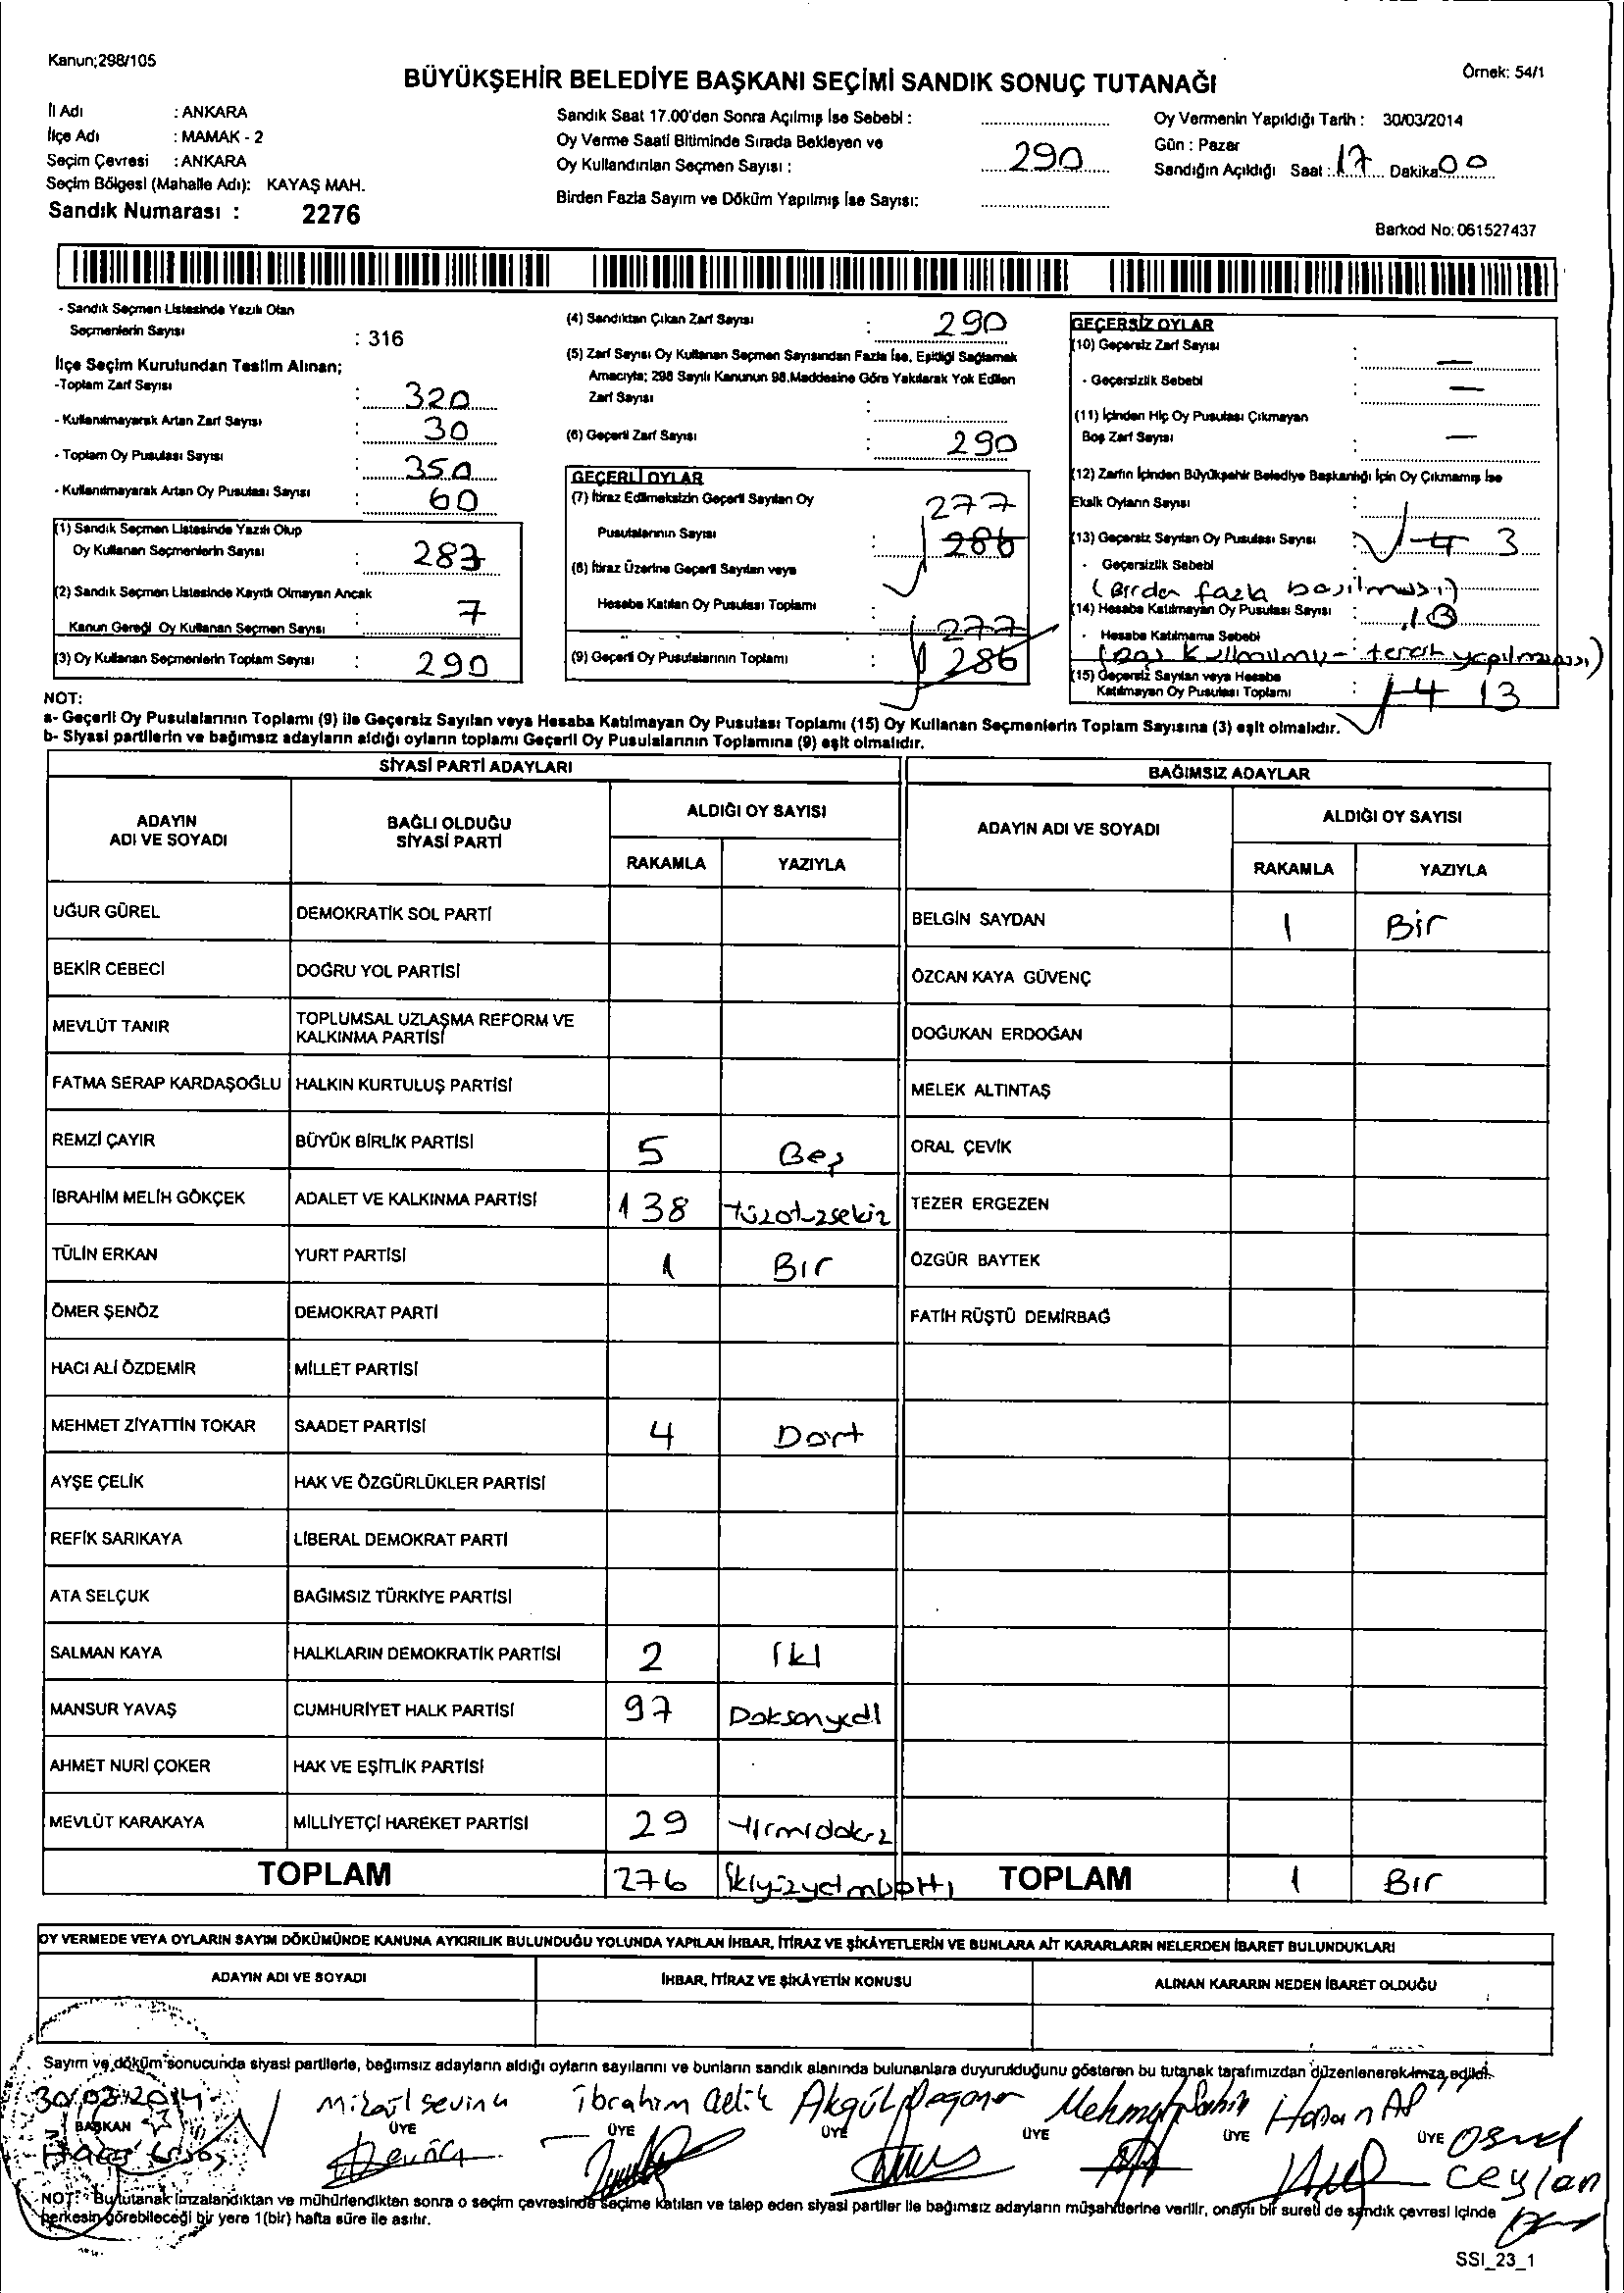 Kanun;298/105
BÜYÜKŞEHİR BELEDİYE BAŞKANI SEÇİMİ SANDIK SONUÇ TUTANAĞI
Örnek: 54/1
İl Adı : ANKARA
İlçe Adı : MAMAK - 2
Seçim Çevresi : ANKARA
Seçim Bölgesi (Mahalle Adı): KAYAŞ MAH.
Sandık Numarası : 2276
Sandık Saat 17.00'den Sonra Açılmış İse Sebebi : ........
Oy Verme Saati Bitiminde Sırada Bekleyen ve
Oy Kullandırılan Seçmen Sayısı : 290
Birden Fazla Sayım ve Döküm Yapılmış İse Sayısı: ........
Oy Vermenin Yapıldığı Tarih : 30/03/2014
Gün : Pazar
Sandığın Açıldığı Saat : 17 Dakika 00
Barkod No: 061527437
- Sandık Seçmen Listesinde Yazılı Olan
Seçmenlerin Sayısı : 316
İlçe Seçim Kurulundan Teslim Alınan;
-Toplam Zarf Sayısı : 320
- Kullanılmayarak Artan Zarf Sayısı : 30
- Toplam Oy Pusulası Sayısı : 350
- Kullanılmayarak Artan Oy Pusulası Sayısı : 60
(1) Sandık Seçmen Listesinde Yazılı Olup
Oy Kullanan Seçmenlerin Sayısı : 283
(2) Sandık Seçmen Listesinde Kayıtlı Olmayan Ancak
Kanun Gereği Oy Kullanan Seçmen Sayısı : 7
(3) Oy Kullanan Seçmenlerin Toplam Sayısı : 290
(4) Sandıktan Çıkan Zarf Sayısı : 290
(5) Zarf Sayısı Oy Kullanan Seçmen Sayısından Fazla İse, Eşitliği Sağlamak
Amacıyla; 298 Sayılı Kanunun 98.Maddesine Göre Yakılarak Yok Edilen
Zarf Sayısı :
(6) Geçerli Zarf Sayısı : 290
GEÇERLİ OYLAR
(7) İtiraz Edilmeksizin Geçerli Sayılan Oy 277
Pusulalarının Sayısı : 286
(8) İtiraz Üzerine Geçerli Sayılan veya
Hesaba Katılan Oy Pusulası Toplamı :
277
(9) Geçerli Oy Pusulalarının Toplamı : 286
GEÇERSİZ OYLAR
(10) Geçersiz Zarf Sayısı : —
- Geçersizlik Sebebi : —
(11) İçinden Hiç Oy Pusulası Çıkmayan
Boş Zarf Sayısı : —
(12) Zarfın İçinden Büyükşehir Belediye Başkanlığı İçin Oy Çıkmamış İse
Eksik Oyların Sayısı :
(13) Geçersiz Sayılan Oy Pusulası Sayısı : 4 3
- Geçersizlik Sebebi
(Birden fazla basılması)
(14) Hesaba Katılmayan Oy Pusulası Sayısı : 10
- Hesaba Katılmama Sebebi
(Boş Kullanılmış - tercih yapılmaması)
(15) Geçersiz Sayılan veya Hesaba
Katılmayan Oy Pusulası Toplamı : 4 13
NOT:
a- Geçerli Oy Pusulalarının Toplamı (9) ile Geçersiz Sayılan veya Hesaba Katılmayan Oy Pusulası Toplamı (15) Oy Kullanan Seçmenlerin Toplam Sayısına (3) eşit olmalıdır.
b- Siyasi partilerin ve bağımsız adayların aldığı oyların toplamı Geçerli Oy Pusulalarının Toplamına (9) eşit olmalıdır.
SİYASİ PARTİ ADAYLARI BAĞIMSIZ ADAYLAR
ADAYIN ADI VE SOYADI BAĞLI OLDUĞU SİYASİ PARTİ ALDIĞI OY SAYISI ADAYIN ADI VE SOYADI ALDIĞI OY SAYISI
RAKAMLA YAZIYLA RAKAMLA YAZIYLA
UĞUR GÜREL DEMOKRATİK SOL PARTİ BELGİN SAYDAN 1 Bir
BEKİR CEBECİ DOĞRU YOL PARTİSİ ÖZCAN KAYA GÜVENÇ
MEVLÜT TANIR TOPLUMSAL UZLAŞMA REFORM VE KALKINMA PARTİSİ DOĞUKAN ERDOĞAN
FATMA SERAP KARDAŞOĞLU HALKIN KURTULUŞ PARTİSİ MELEK ALTINTAŞ
REMZİ ÇAYIR BÜYÜK BİRLİK PARTİSİ 5 Beş ORAL ÇEVİK
İBRAHİM MELİH GÖKÇEK ADALET VE KALKINMA PARTİSİ 138 Yüzotuzsekiz TEZER ERGEZEN
TÜLİN ERKAN YURT PARTİSİ 1 Bir ÖZGÜR BAYTEK
ÖMER ŞENÖZ DEMOKRAT PARTİ FATİH RÜŞTÜ DEMİRBAĞ
HACI ALİ ÖZDEMİR MİLLET PARTİSİ
MEHMET ZİYATTİN TOKAR SAADET PARTİSİ 4 Dört
AYŞE ÇELİK HAK VE ÖZGÜRLÜKLER PARTİSİ
REFİK SARIKAYA LİBERAL DEMOKRAT PARTİ
ATA SELÇUK BAĞIMSIZ TÜRKİYE PARTİSİ
SALMAN KAYA HALKLARIN DEMOKRATİK PARTİSİ 2 İki
MANSUR YAVAŞ CUMHURİYET HALK PARTİSİ 97 Doksanyedi
AHMET NURİ ÇOKER HAK VE EŞİTLİK PARTİSİ
MEVLÜT KARAKAYA MİLLİYETÇİ HAREKET PARTİSİ 29 Yirmidokuz
TOPLAM 276 İkiyüzyetmişaltı TOPLAM 1 Bir
OY VERMEDE VEYA OYLARIN SAYIM DÖKÜMÜNDE KANUNA AYKIRILIK BULUNDUĞU YOLUNDA YAPILAN İHBAR, İTİRAZ VE ŞİKÂYETLERİN VE BUNLARA AİT KARARLARIN NELERDEN İBARET BULUNDUKLARI
ADAYIN ADI VE SOYADI İHBAR, İTİRAZ VE ŞİKÂYETİN KONUSU ALINAN KARARIN NEDEN İBARET OLDUĞU
Sayım ve döküm sonucunda siyasi partilerle, bağımsız adayların aldığı oyların sayılarını ve bunların sandık alanında bulunanlara duyurulduğunu gösteren bu tutanak tarafımızdan düzenlenerek imza edildi.
30/03/2014 Mikail Sevinç İbrahim Çelik Akgül Mehmet Şahin Hasan Al
BAŞKAN ÜYE ÜYE ÜYE ÜYE ÜYE ÜYE
Ceylan
NOT: Bu tutanak imzalandıktan ve mühürlendikten sonra o seçim çevresinde seçime katılan ve talep eden siyasi partiler ile bağımsız adayların müşahitlerine verilir, onaylı bir sureti de sandık çevresi içinde
herkesin görebileceği bir yere 1(bir) hafta süre ile asılır.
SSI_23_1